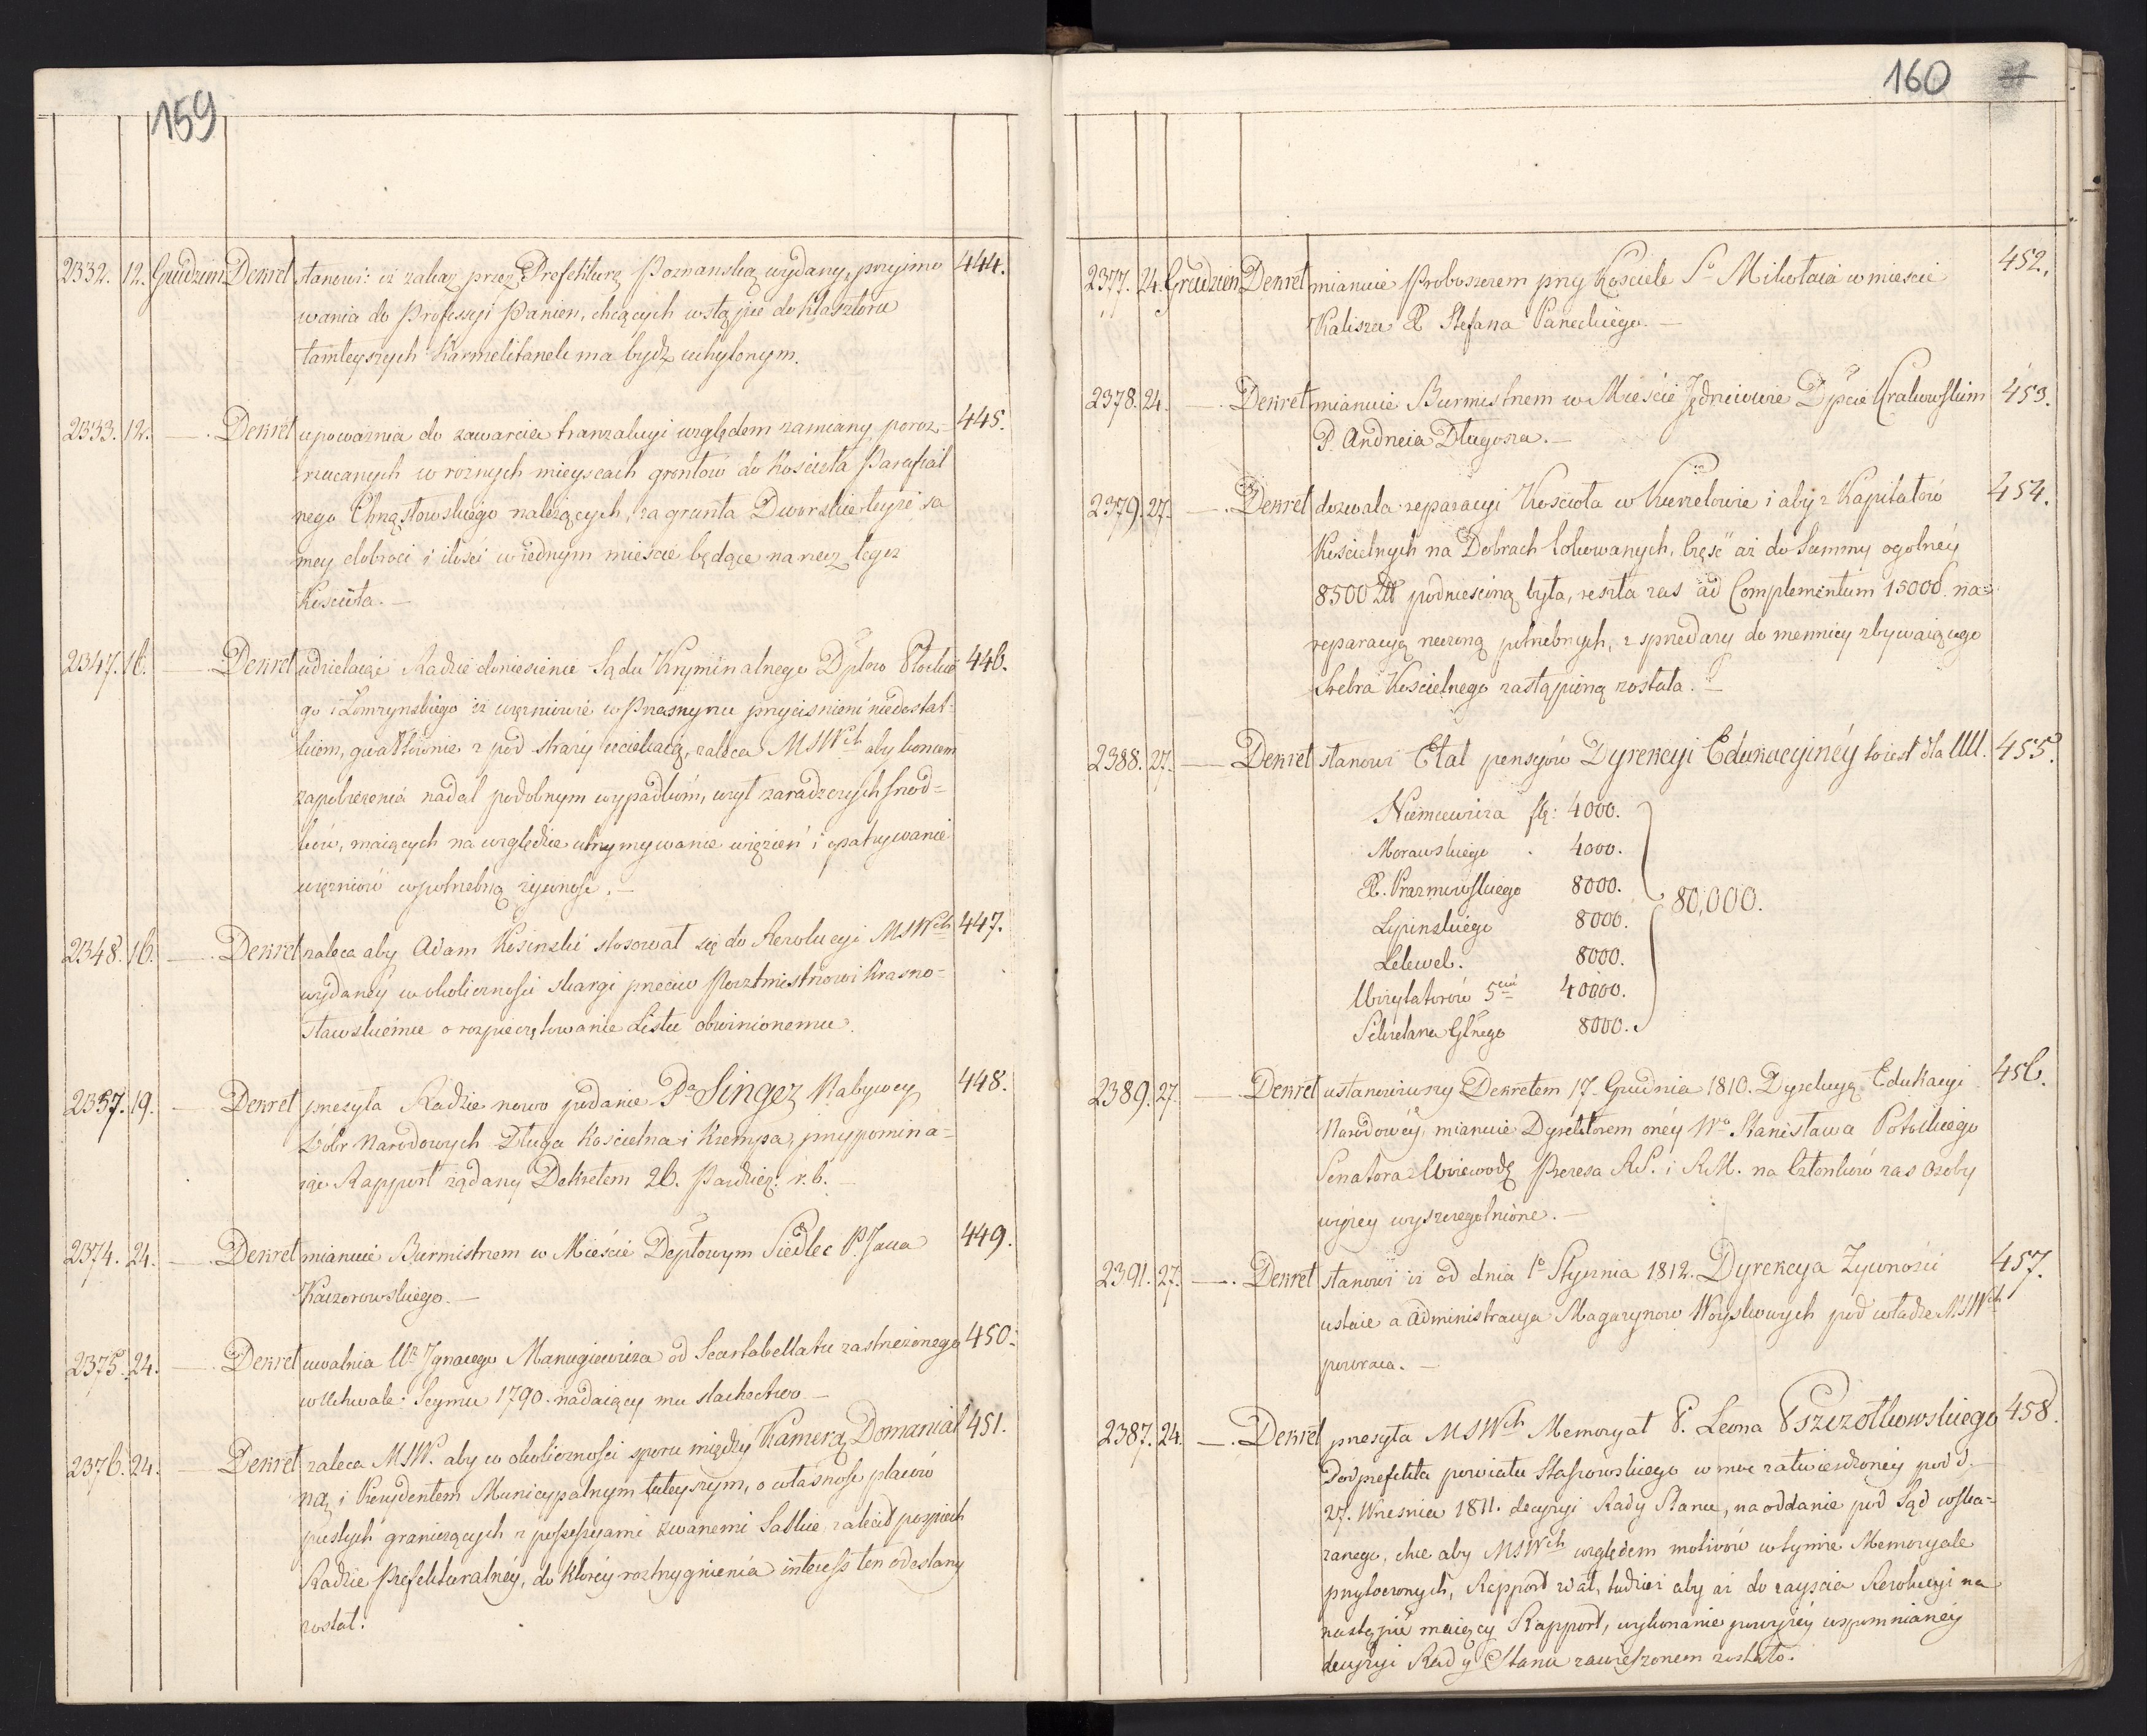 159
2332. 12. Grudzień Dekret stanowi: iż zakaz przez Prefekturę Poznanską wydany, przyimo 444.
wania do Professyi Panien, chcących wstąpić do Klasztoru
tamteyszych Karmelitanek ma bydź uchylonym.
2333. 12. —. Dekret upoważnia do zawarcia tranzakcyi względem zamiany poroz= 445.
rzucanych w rożnych mieyscach grontów do Kościoła Parafial
nego Chrząstowskiego należących, za grunta Dworskie teyże sa
mey dobroci i ilości w iednym mieście będące na rzecz tegoż
Kościoła. —
2347. 16. — Dekret udzielaiąc Radzie doniesienie Sądu Kryminalnego Dpttow Płockie 446.
go i Łomżynskiego iż więźniowie w Prasnyszu przyciśnieni niedostat-
kiem, gwałtownie z pod straży uciekaią, zaleca MSWch aby koncem
zapobieżenia nadal podobnym wypadkóm, użył zaradczych środ=
ków, maiących na względzie utrzymywanie więzień i opatrywanie
więzniów w potrzebną żywność. —
2348. 16. —. Dekret zaleca aby Adam Kosinski stosował się do Rezolucyi MSWch 447.
wydaney w okoliczności skargi przeciw Pocztmistrzowi Krasno=
stawskiému o rozpieczętowanie Listu obwinionemu.
2357. 19. — Dekret przesyła Radzie nowo podanie Pa Singez Nabywcy 448.
Dóbr Narodowych Długa Kościelna i Krempa, przypomina=
iąc Rapport żądany Dekretem 26. Paździer: r. b. —
2374. 24. —. Dekret mianuie Burmistrzem w Mieście Deptowym Siedlec P. Jana 449.
Kaczorowskiego. —
2375. 24. —. Dekret uwalnia Ur Ignacego Manugiewicza od Scartabellatu zastrzeżonego 450.
w Uchwale Seymu 1790. nadaiącey mu slachectwo —
2376. 24. — Dekret zaleca MSW. aby w okoliczności sporu między Kamerą Domanial 451.
ną i Prezydentem Municypalnym tuteyszym, o własność placów
pustych graniczących z possessyami zwanemi Satkie, zalecił pośpiech
Radzie Prefekturalnéy, do któréy rozstrzygnienia interess ten odesłany
został.
160
2377. 24. Grudzień Dekret mianuie Proboszczem przy Kościele So Mikołaia w mieście 452.
Kaliszu X Stefana Paneckiego. —
2378. 24. —. Dekret mianuie Burmistrzem w Mieście Jędrzeiowie Dpcie Krakowskim 453.
P. Andrzeia Długosza. —
2379. 27. —. Dekret dozwala reparacyi Kościoła w Kurzelowie i aby z Kapitałów 454.
Kościelnych na Dobrach lokowanych, Część aż do Summy ogolnéy
8500 Złł podniesioną była, reszta zas ad Complementum 15000. na=
reparacyą rzeczoną potrzebnych, z sprzedaży do mennicy zbywaiącego
Srebra Kościelnego zastąpioną została. —
2388. 27. — Dekret stanowi Etat pensyów Dyrekcyi Edukacyinéy to iest dla UU. 455.
Niemcewicza flp: 4000.
Morawskiego . 4000.
X. Prazmowskiego 8000.
80,000.
Lipinskiego 8000.
Lelewel. 8000.
Wizytatorów 5ciu 40000.
Sekretarza Głnego 8000.
2389. 27. — Dekret ustanowiwszy Dekretem 17. Grudnia 1810. Dyrekcyą Edukacyi 456.
Narodowéy, mianuie Dyrektorem onéy Wo Stanisława Potockiego
Senatora Woiewodę Prezesa RS. i RM. na Członków zas Osoby
wyżey wyszczególnione. —
2391. 27. —. Dekret stanowi iż od dnia 1o Stycznia 1812. Dyrekcya Żywności 457.
ustaie a administracya Magazynow Woyskowych pod władze MSWch
powraca. —
2387. 24. —. Dekret przesyła MSWch Memoryał P. Leona Pszczołkowskiego 458.
Podprefekta powiatu Staszowskiego w moc zatwierdzoney pod d. —
27. Wrzesnia 1811. decyzyi Rady Stanu, na oddanie pod Sąd wska=
zanego, chce aby MSWch względem motiwów w tymże Memoryale
przytoczonych, Rapport zdał, tudzież aby aż do zayscia Rezolucyi na
nastąpić maiący Rapport, wykonanie powyżéy wspomnianéy
decyzyi Rady Stanu zawieszonem zostało.